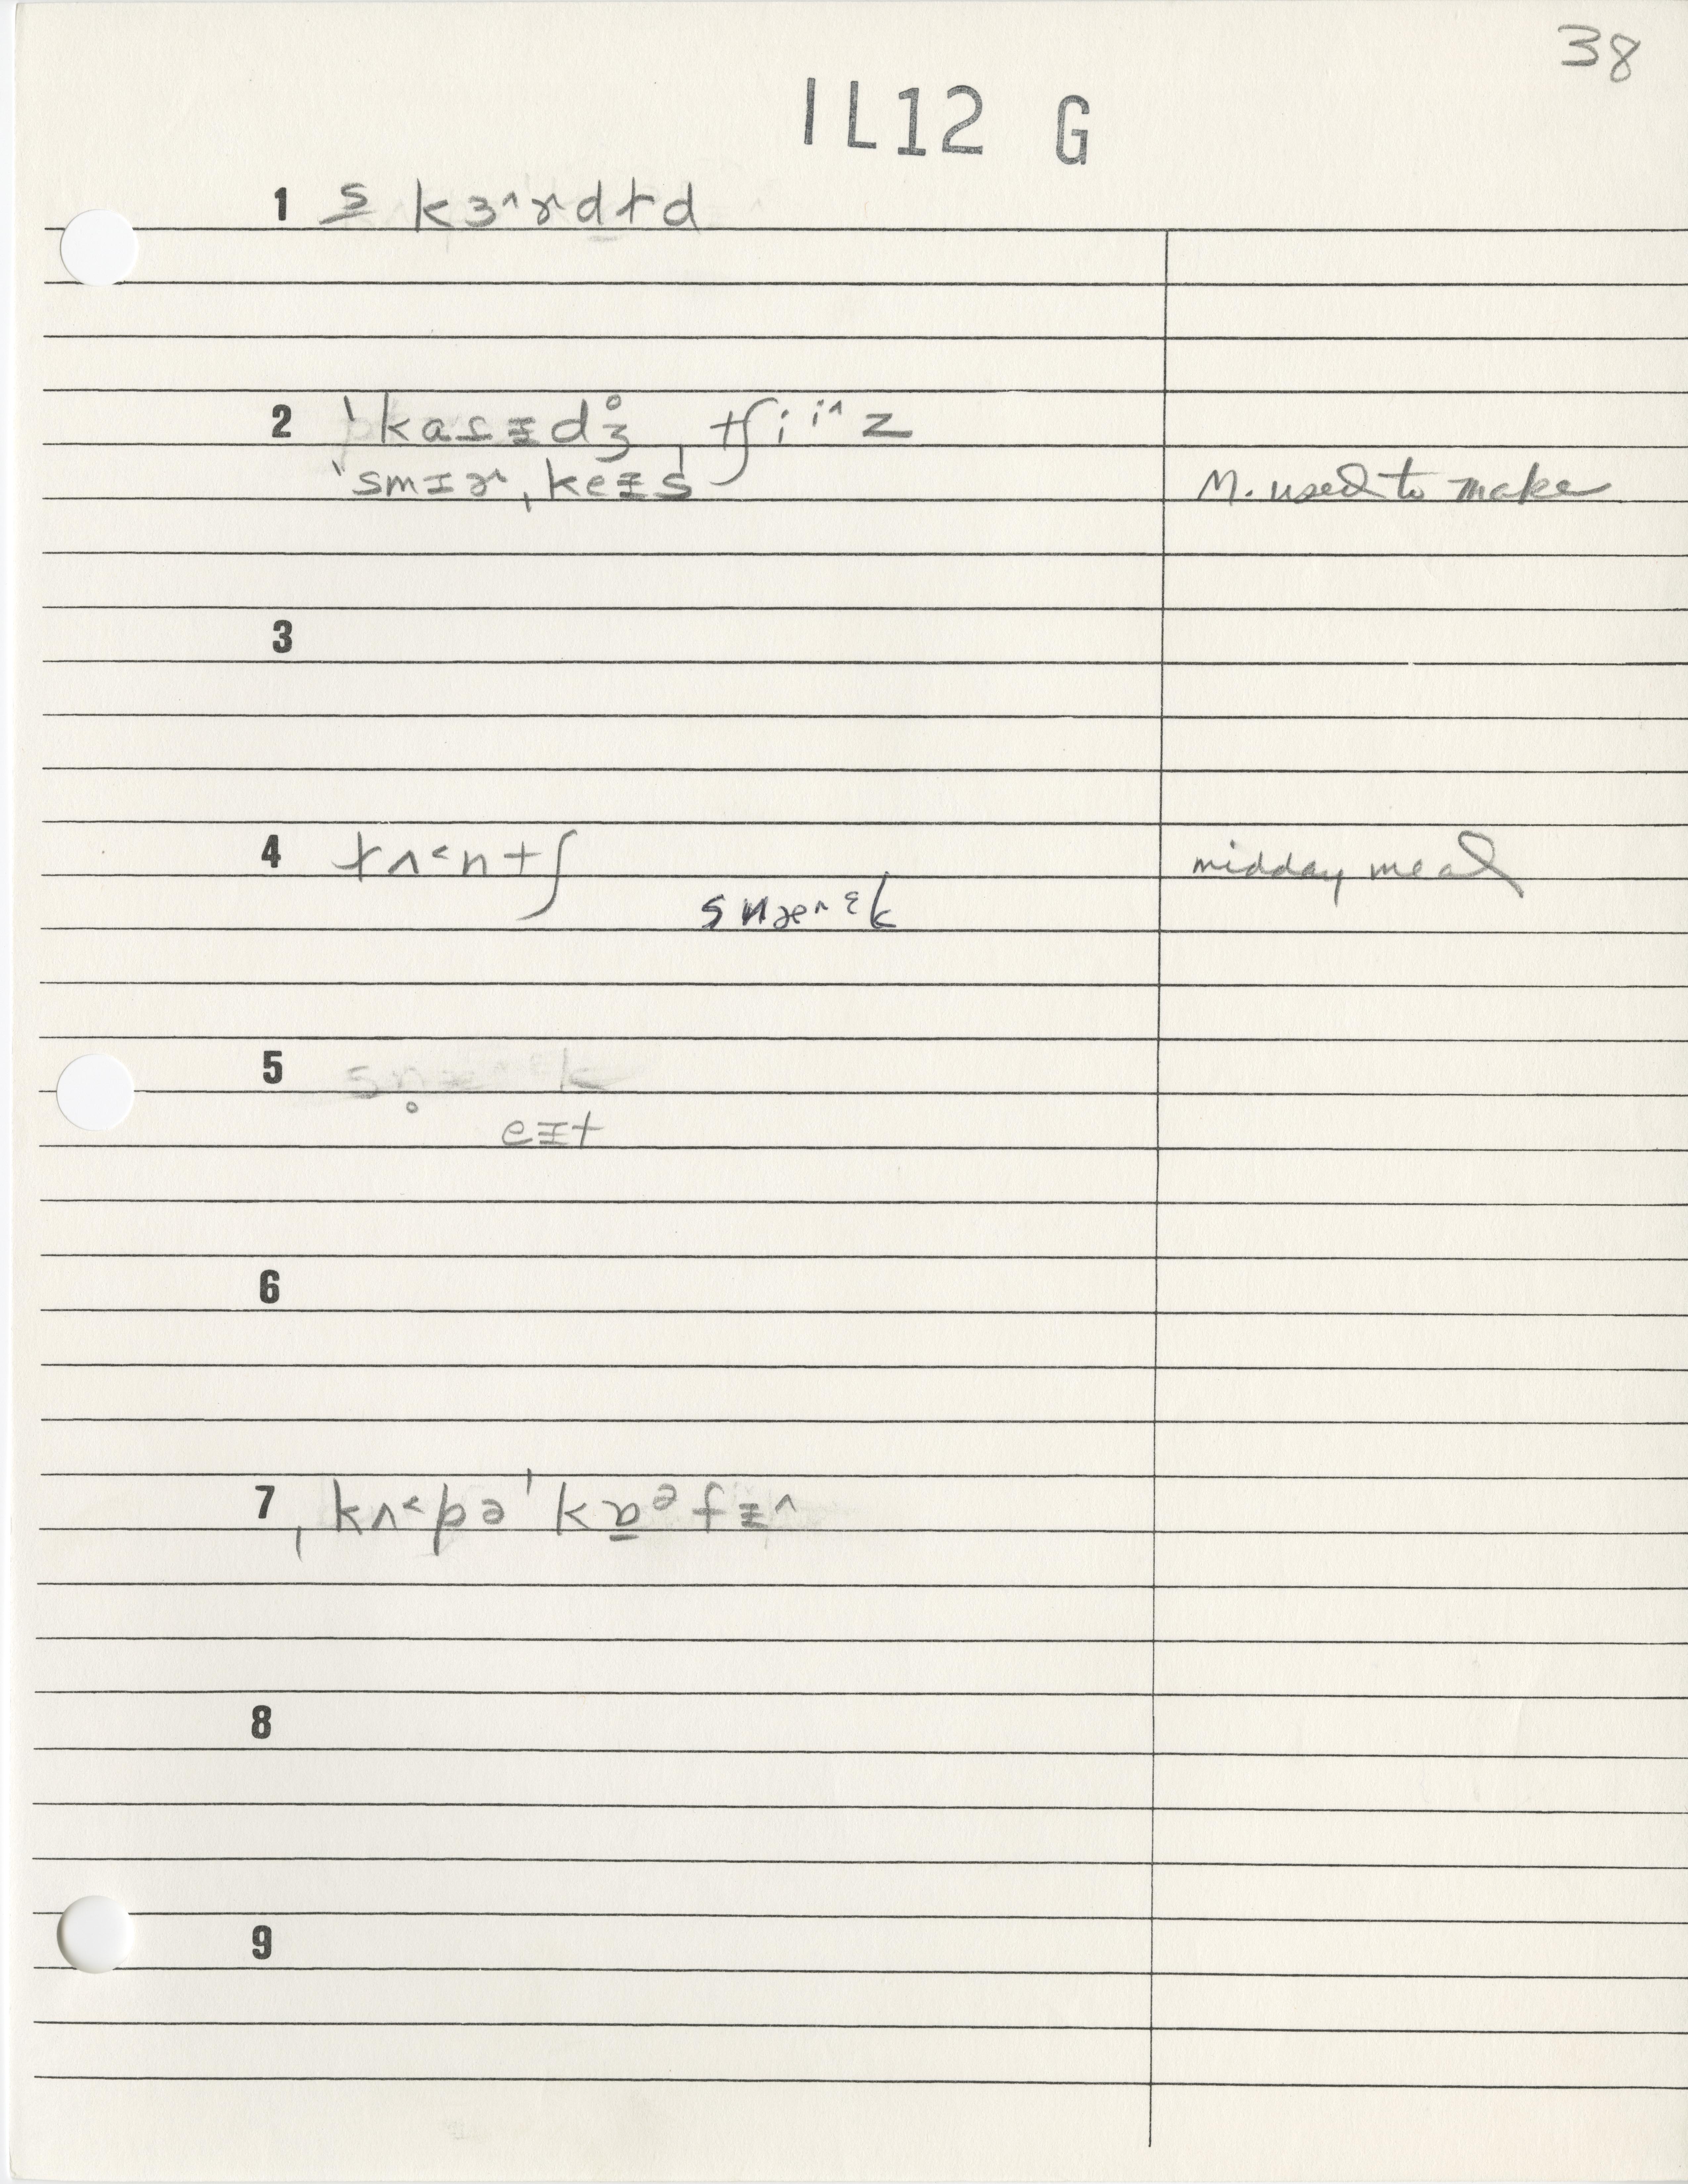 38
IL12 G
1 s̲ kɜ^ɚd̲ɫd
2 ˈkaɾɪdʒ̊ ˌtʃiiˆz
ˈsmɪɚˌkeɪs M. used to make
3
4 ɫʌ˂ntʃ midday meal
snæ˄ɛk
5
eɪt
6
7 ˌkʌ˂pəˈkɒ̲ᵊfɪ^
8
9